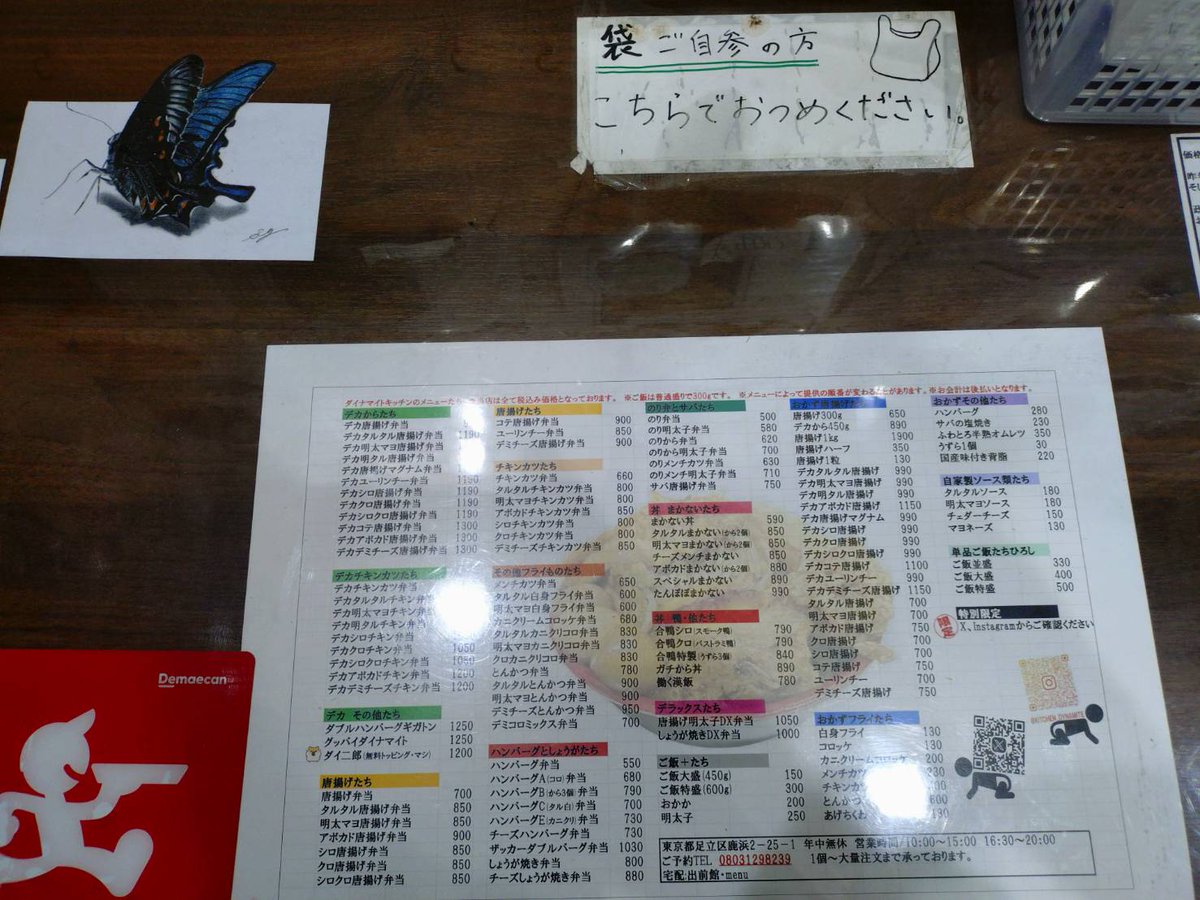 袋 ご自参の方
こちらでおつめください。
ダイナマイトキッチンのメニューたち
店は全て税込み価格となっております。 ※ご飯は普通盛りで300gです。 ※メニューによって提供の順番が変わることがあります。※お会計は後払いとなります。
デカからたち
デカ唐揚げ弁当
デカタルタル唐揚げ弁当 1190
デカ明太マヨ唐揚げ弁当
デカ明タル唐揚げ弁当
デカ唐揚げマグナム弁当
デカユーリンチー弁当 1190
デカシロ唐揚げ弁当 1190
デカクロ唐揚げ弁当 1190
デカシロクロ唐揚げ弁当 1190
デカコテ唐揚げ弁当 1300
デカアボカド唐揚げ弁当 1300
デカデミチーズ唐揚げ弁当 1300
デカチキンカツたち
デカチキンカツ弁当
デカタルタルチキン弁当
デカ明太マヨチキン弁当
デカ明タルチキン弁当
デカシロチキン弁当
デカクロチキン弁当 1050
デカシロクロチキン弁当 1050
デカアボカドチキン弁当 1200
デカデミチーズチキン弁当 1200
デカ その他たち
ダブルハンバーグギガトン 1250
グッバイダイナマイト 1250
ダイ二郎(無料トッピング・マシ) 1200
唐揚げたち
唐揚げ弁当 700
タルタル唐揚げ弁当 850
明太マヨ唐揚げ弁当 850
アボカド唐揚げ弁当 900
シロ唐揚げ弁当 850
クロ唐揚げ弁当 850
シロクロ唐揚げ弁当 850
唐揚げたち
コテ唐揚げ弁当 900
ユーリンチー弁当 850
デミチーズ唐揚げ弁当 900
チキンカツたち
チキンカツ弁当 660
タルタルチキンカツ弁当 800
明太マヨチキンカツ弁当 800
アボカドチキンカツ弁当 850
シロチキンカツ弁当 800
クロチキンカツ弁当 800
デミチーズチキンカツ弁当 850
その他フライものたち
メンチカツ弁当 650
タルタル白身フライ弁当 600
明太マヨ白身フライ弁当 600
カニクリームコロッケ弁当 680
タルタルカニクリコロ弁当 830
明太マヨカニクリコロ弁当 830
クロカニクリコロ弁当 830
とんかつ弁当 780
タルタルとんかつ弁当 900
明太マヨとんかつ弁当 900
デミチーズとんかつ弁当 950
デミコロミックス弁当 700
ハンバーグとしょうがたち
ハンバーグ弁当 550
ハンバーグA(コロ)弁当 680
ハンバーグB(から3個)弁当 790
ハンバーグC(タル白)弁当 700
ハンバーグE(カニクリ)弁当 730
チーズハンバーグ弁当 730
ザッカーダブルバーグ弁当 1030
しょうが焼き弁当 800
チーズしょうが焼き弁当 880
のり弁とサバたち
のり弁当 500
のり明太子弁当 580
のりから弁当 620
のりから明太子弁当 700
のりメンチカツ弁当 630
のりメンチ明太子弁当 710
サバ唐揚げ弁当 750
丼 まかないたち
まかない丼 590
タルタルまかない(から2個) 850
明太マヨまかない(から2個) 850
チーズメンチまかない 850
アボカドまかない(から2個) 880
スペシャルまかない 890
たんぽぽまかない 990
丼 鴨・他たち
合鴨シロ(スモーク鴨) 790
合鴨クロ(パストラミ鴨) 790
合鴨特製(うずら3個) 840
ガチから丼 890
働く漢飯 780
デラックスたち
唐揚げ明太子DX弁当 1050
しょうが焼きDX弁当 1000
ご飯+たち
ご飯大盛(450g) 150
ご飯特盛(600g) 300
おかか 200
明太子 250
おかず唐揚げたち
唐揚げ300g 650
デカから450g 890
唐揚げ1kg 1900
唐揚げハーフ 350
唐揚げ1粒 130
デカタルタル唐揚げ 990
デカ明太マヨ唐揚げ 990
デカ明タル唐揚げ 990
デカアボカド唐揚げ 1150
デカ唐揚げマグナム 990
デカシロ唐揚げ 990
デカクロ唐揚げ 990
デカシロクロ唐揚げ 990
デカコテ唐揚げ 1100
デカユーリンチー 990
デカデミチーズ唐揚げ 1150
タルタル唐揚げ 700
明太マヨ唐揚げ 700
アボカド唐揚げ 750
クロ唐揚げ 700
シロ唐揚げ 700
コテ唐揚げ 750
ユーリンチー 700
デミチーズ唐揚げ 750
おかずフライたち
白身フライ 130
コロッケ
カニクリームコロッケ
メンチカツ 230
チキンカツ
とんかつ 600
あげちくわ 130
おかずその他たち
ハンバーグ 280
サバの塩焼き 230
ふわとろ半熟オムレツ 350
うずら1個 30
国産味付き背脂 220
自家製ソース類たち
タルタルソース 180
明太マヨソース 180
チェダーチーズ 150
マヨネーズ 130
単品ご飯たちひろし
ご飯並盛 330
ご飯大盛 400
ご飯特盛 500
限定
特別限定
X、Instagramからご確認ください
@KITCHEN_DYNAMITE
東京都足立区鹿浜2-25-1 年中無休 営業時間/10:00~15:00 16:30~20:00
ご予約TEL 08031298239 1個~大量注文まで承っております。
宅配:出前館・menu
Demaecan
価格
昨